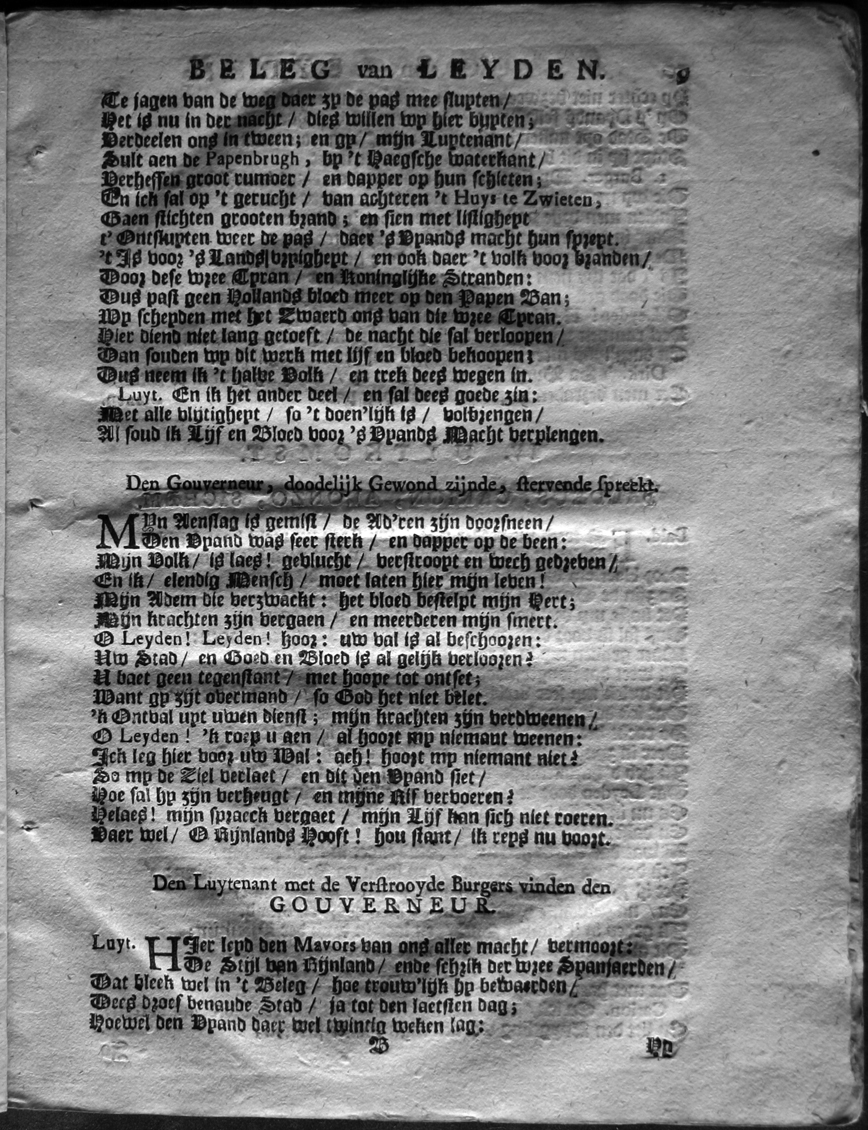 BELEG van LEYDEN. 9
Te jagen van de weg daer zy de pas mee sluyten /
Het is nu in der nacht / dies willen wy hier buyten;
Verdeelen ons in tween; en gy / mijn Luytenant /
Sult aen de Papenbrugh, by 't Haegsche waterkant /
Verheffen groot rumoer / en dapper op hun schieten;
En ick sal op 't gerucht / van achteren 't Huys te Zwieten,
Gaen stichten grooten brand; en sien met listigheyt
t' Ontsluyten weer de pas / daer 's Vyands macht hun spreyt.
't Is voor 's Lands vryigheyt / en ook daer 't volk voor branden /
Door dese wree Tyran / en Koninglijke Stranden:
Dus past geen Hollands bloed meer op den Papen Ban;
Wy scheyden met het Zwaerd ons van die wree Tyran.
Hier diend niet lang getoeft / de nacht die sal verloopen /
Dan souden wy dit werk met lijf en bloed bekoopen;
Dus neem ik 't halve Volk / en trek dees wegen in.
Luyt. En ik het ander deel / en sal dees goede zin:
Met alle vlijtigheyt / so 't doen'lijk is / volbrengen /
Al soud ik Lijf en Bloed voor 's Vyands Macht verplengen.
Den Gouverneur, doodelijk Gewond zijnde, stervende spreekt.
MYn Aenslag is gemist / de Ad'ren zijn doorsneen /
Den Vyand was seer sterk / en dapper op de been:
Mijn Volk / is laes! gevlucht / verstroopt en wech gedreven /
En ik / elendig Mensch / moet laten hier mijn leven!
Mijn Adem die verzwackt: het bloed bestelpt mijn Hert;
Mijn krachten zijn vergaen / en meerderen mijn smert.
O Leyden! Leyden! hoor: uw val is al beschooren:
Uw Stad / en Goed en Bloed is al gelijk verlooren?
U baet geen tegenstant / met hoope tot ontset;
Want gy zijt overmand / so God het niet belet.
'k Ontval uyt uwen dienst; mijn krachten zijn verdweenen /
O Leyden! 'k roep u aen / al hoort my niemant weenen:
Ick leg hier voor uw Wal: ach! hoort my niemant niet?
So my de Ziel verlaet / en dit den Vyand siet /
Hoe sal hy zijn verheugt / en mijne Rif vervoeren?
Helaes! mijn spraeck vergaet / mijn Lijf kan sich niet roeren.
Vaer wel / O Rijnlands Hooft! hou stant / ik reys nu voort.
Den Luytenant met de Verstrooyde Burgers vinden den
GOUVERNEUR.
Luyt. HIer leyd den Mavors van ons aller macht / vermoort:
De Stijl van Rijnland / ende schrik der wree Spanjaerden /
Dat bleek wel in 't Beleg / hoe trouw'lijk hy bewaerden /
Dees droef benaude Stad / ja tot den laetsten dag;
Hoewel den Vyand daer wel twintig weken lag:
B Hy